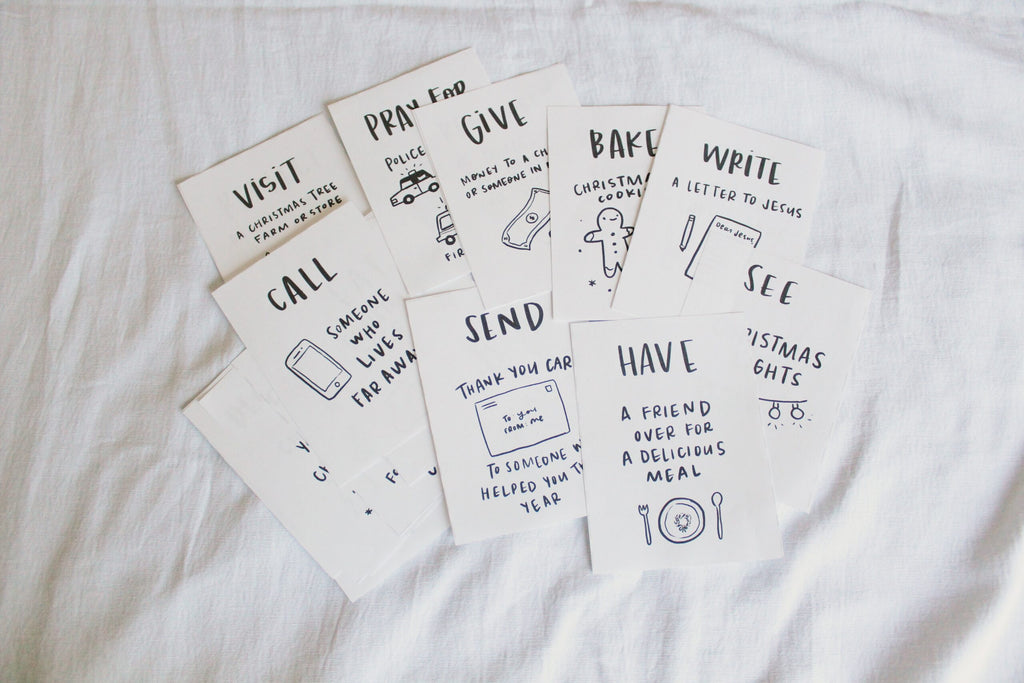 VISIT
A CHRISTMAS TREE
FARM OR STORE
PRAY FOR
POLICE
GIVE
MONEY TO A
OR SOMEONE IN
BAKE
WRITE
A LETTER TO JESUS
Dear Jesus
CALL
SOMEONE
WHO
LIVES
FAR
SEND
THANK YOU
TO YOU
FROM: ME
TO SOMEONE
HELPED YOU
YEAR
HAVE
A FRIEND
OVER FOR
A DELICIOUS
MEAL
SEE